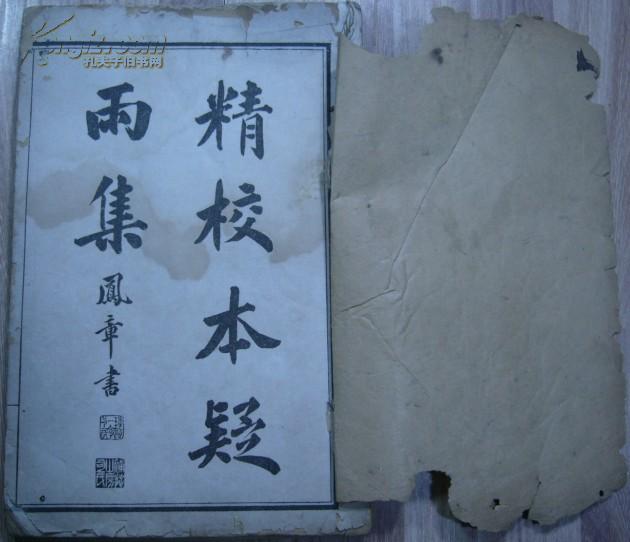 精校本疑
雨集
鳳章書
Kongfz.com
孔夫子旧书网